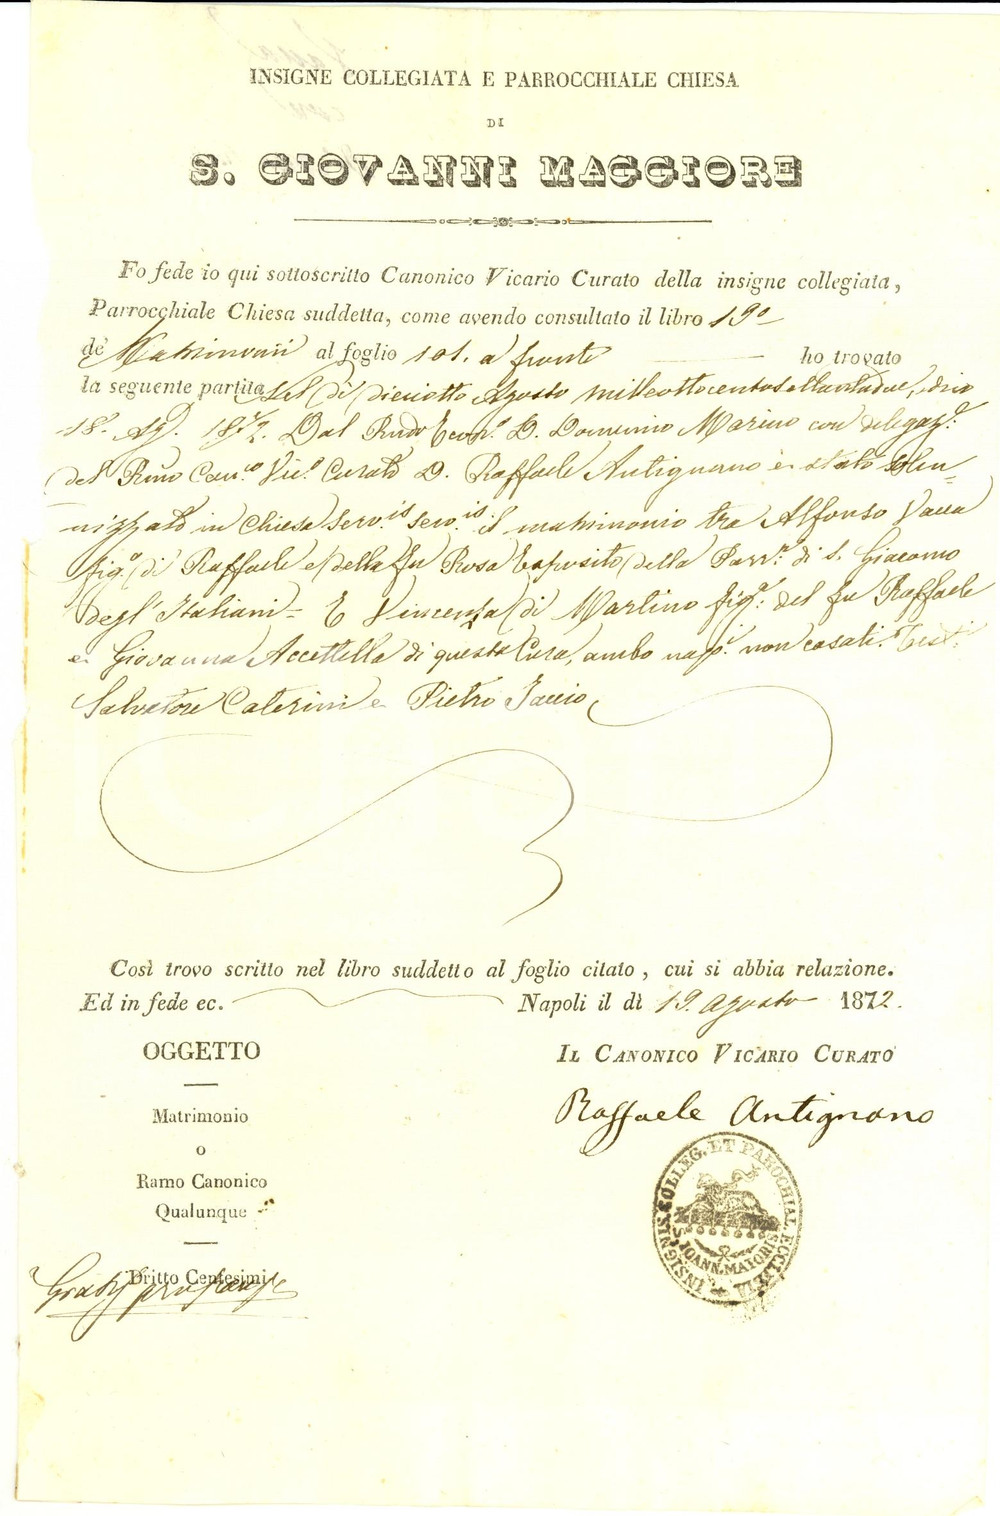 INSIGNE COLLEGIATA E PARROCCHIALE CHIESA
DI
S. GIOVANNI MAGGIORE
Fo fede io qui sottoscritto Canonico Vicario Curato della insigne collegiata,
Parrocchiale Chiesa suddetta, come avendo consultato il libro 19º
de' Matrimonii al foglio 101. a fronte ho trovato
la seguente partita Lì dì dieciotto Agosto milleottocentosettantadue, dico
18. Ag. 1872. Dal Rndo Econ.º D. Domenico Marino con delegaz.e
del Rmo Can.co Vic.º Curato D. Raffaele Antignano è stato solen-
nizzato in Chiesa serv.is serv.is il matrimonio tra Alfonso Vacca
fig.º di Raffaele e della fu Rosa Esposito della Parr.a di S. Giacomo
degl'Italiani - E Vincenza di Martino fig.a del fu Raffaele
e Giovanna Accettella di questa Cura, ambo nap.i non casati. Test.i
Salvatore Caterini e Pietro Iaccio
Così trovo scritto nel libro suddetto al foglio citato, cui si abbia relazione.
Ed in fede ec. Napoli il dì 19. Agosto 1872.
OGGETTO
IL CANONICO VICARIO CURATO
Matrimonio
o
Ramo Canonico
Qualunque
Raffaele Antignano
Dritto Centesimi
Gratis
INSIGNIS. COLLEG. ET PAROCHIAL. ECCLESIA
S. IOANN. MAIORIS